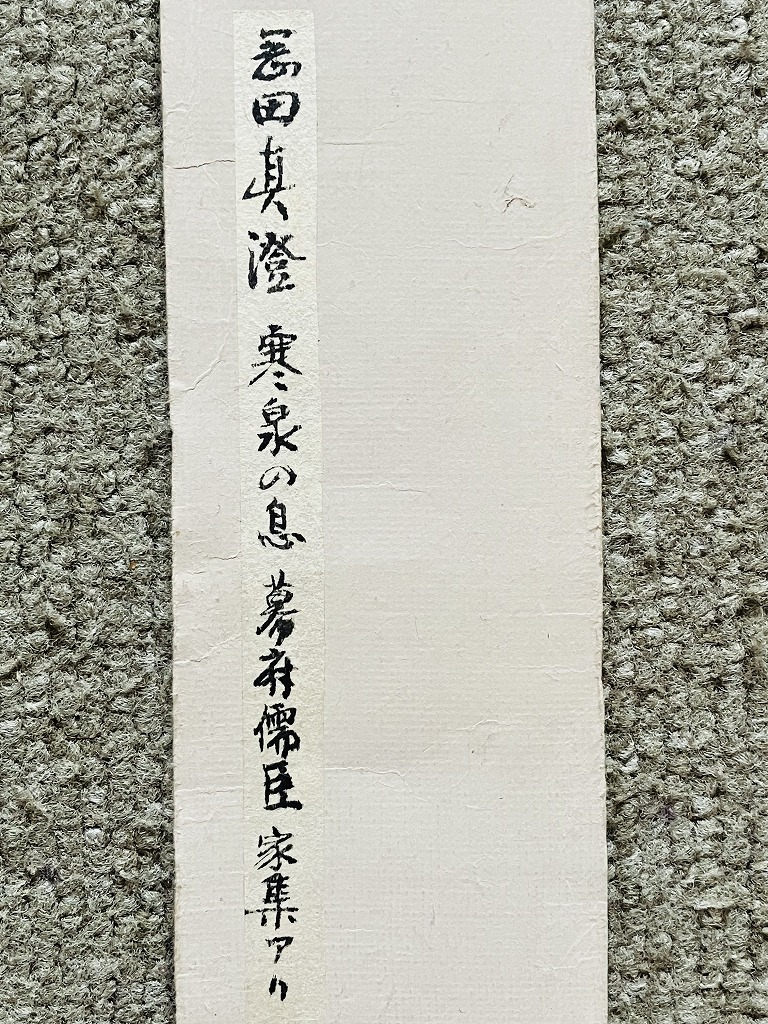 岡田真澄 寒泉の息 幕府儒臣 家集アリ